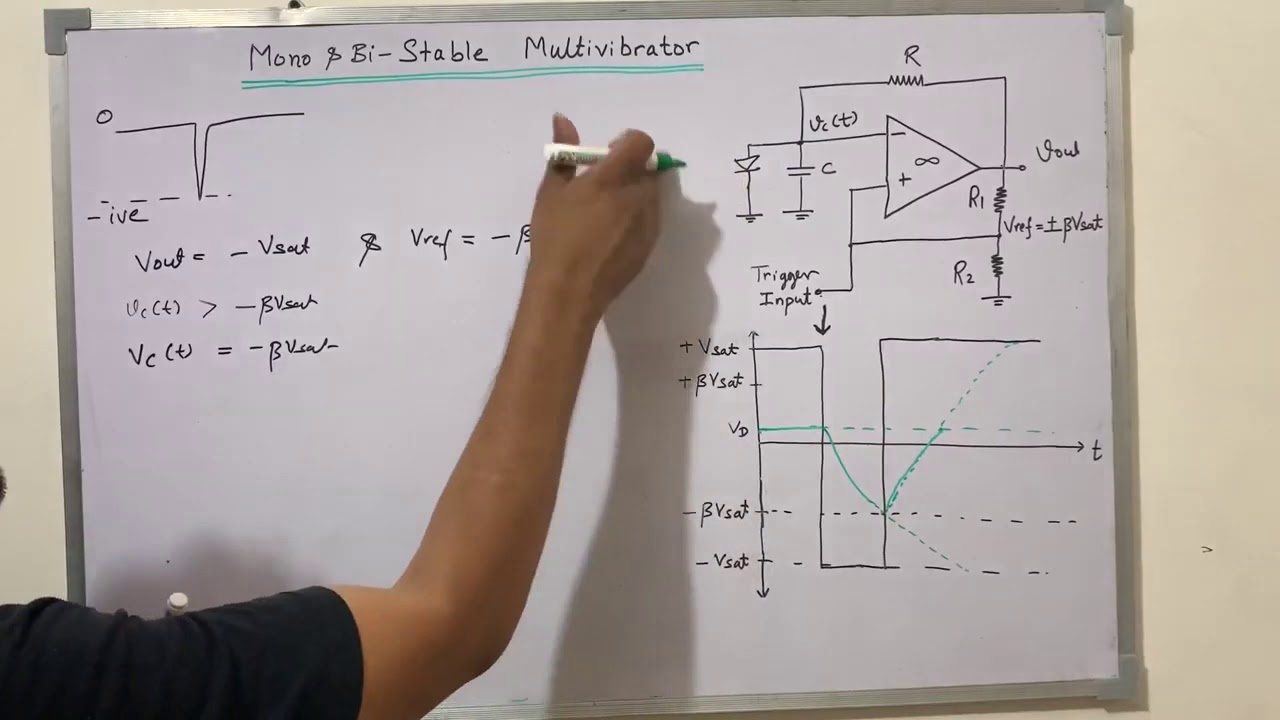 Mono & Bi-Stable Multivibrator
0
-ive
Vout = - Vsat & Vref = - β
υc(t) > - βVsat
Vc(t) = - βVsat
R
υc(t)
C
-
∞
+
υout
R1
Vref = ± βVsat
R2
Trigger
Input
+ Vsat
+ βVsat
VD
t
- βVsat
- Vsat